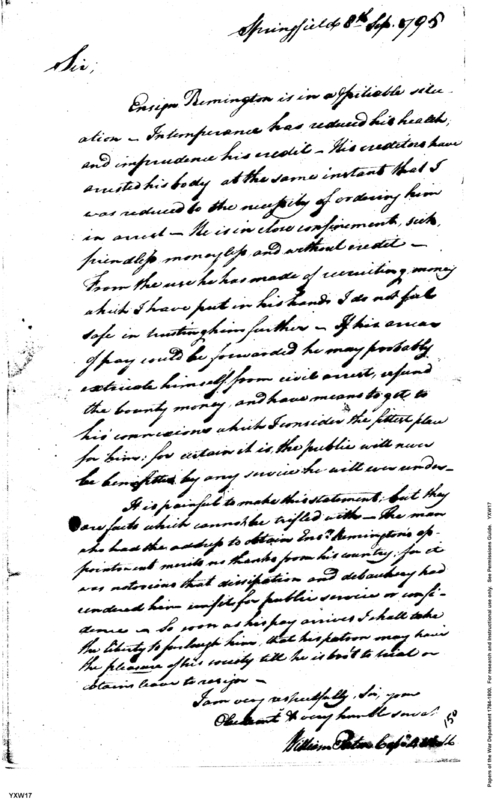 Springfield 8th Sep. 1795
Sir,
Ensign Remington is in a pitiable situ-
ation – Intemperance has reduced his health,
and imprudence his credit – His creditors have
arrested his body at the same instant that I
was reduced to the necessity of ordering him
in arrest – He is in close confinement, sick,
friendless moneyless and without credit –
From the use he has made of recruiting money
which I have put in his hands I do not feel
safe in trusting him further – If his arrears
of pay could be forwarded he may probably
extricate himself from civil arrest, refund
the bounty money, and have means to get to
his connexions which I consider the fittest place
for him; for certain it is the public will never
be benefitted by any service he will ever under-
It is painful to make this statement; but they
are facts which cannot be trifled with – The man
who had the address to obtain Ensn Remington's ap-
pointment merits no thanks from his country; for it
was notorious that dissipation and debauchery had
rendered him unfit for public service or confi-
dence – So soon as his pay arrives I shall take
the liberty to furlough him, that his patron may have
the pleasure of his society till he is brot to trial or
obtains leave to resign –
I am very respectfully, Sir, your
Obedient & very humble servt.
William
150
YXW17
Papers of the War Department 1784-1800. For research and instructional use only. See Permissions Guide. YXW17